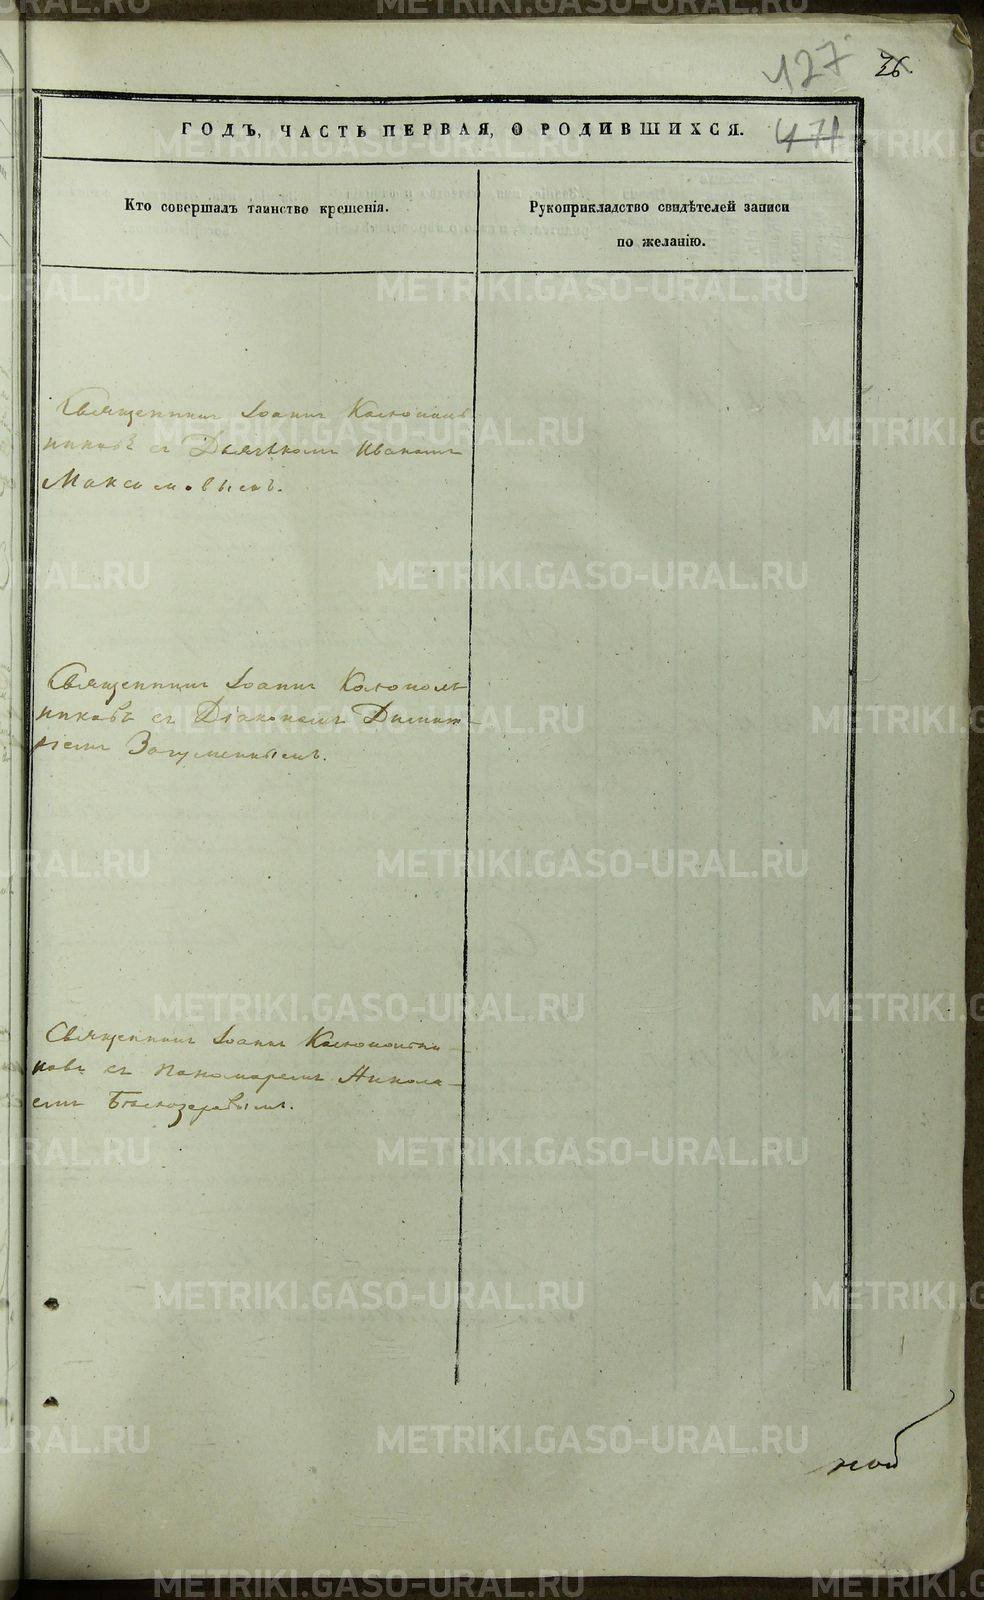 127
26.
ГОДЪ, ЧАСТЬ ПЕРВАЯ, О РОДИВШИХСЯ.
471
Кто совершалъ таинство крещенія.
Рукоприкладство свидѣтелей записи
по желанію.
Священникъ Іоаннъ Колоколь
никовъ съ Дьячкомъ Иваномъ
Максимовымъ.
Священникъ Іоаннъ Колоколь
никовъ съ Діакономъ Димит-
ріемъ Загуменнымъ.
Священникъ Іоаннъ Колокольни-
ковъ съ Пономаремъ Никола-
емъ Бѣлозеровымъ.
METRIKI.GASO-URAL.RU